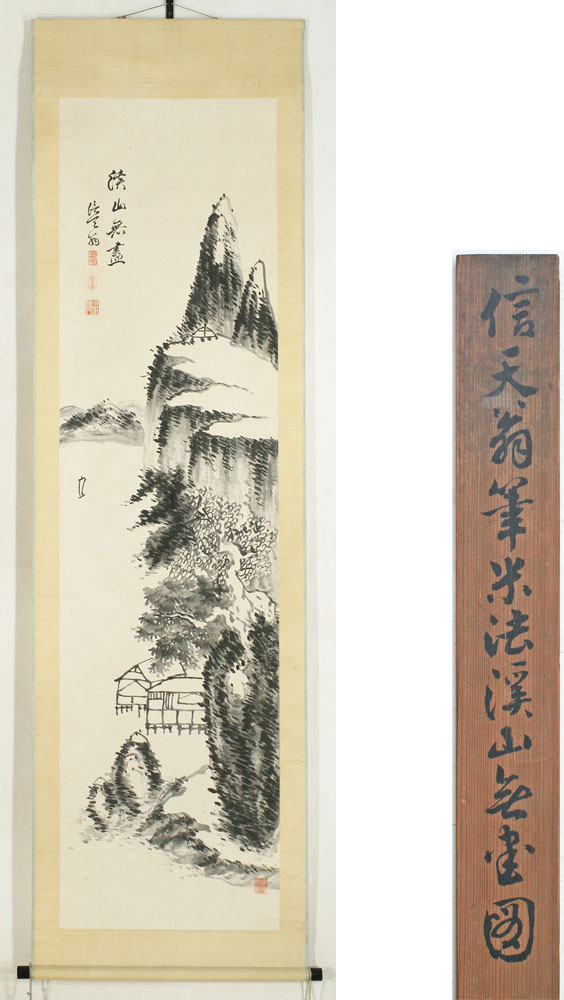 溪山無盡
信天翁
信天翁筆米法溪山無盡図